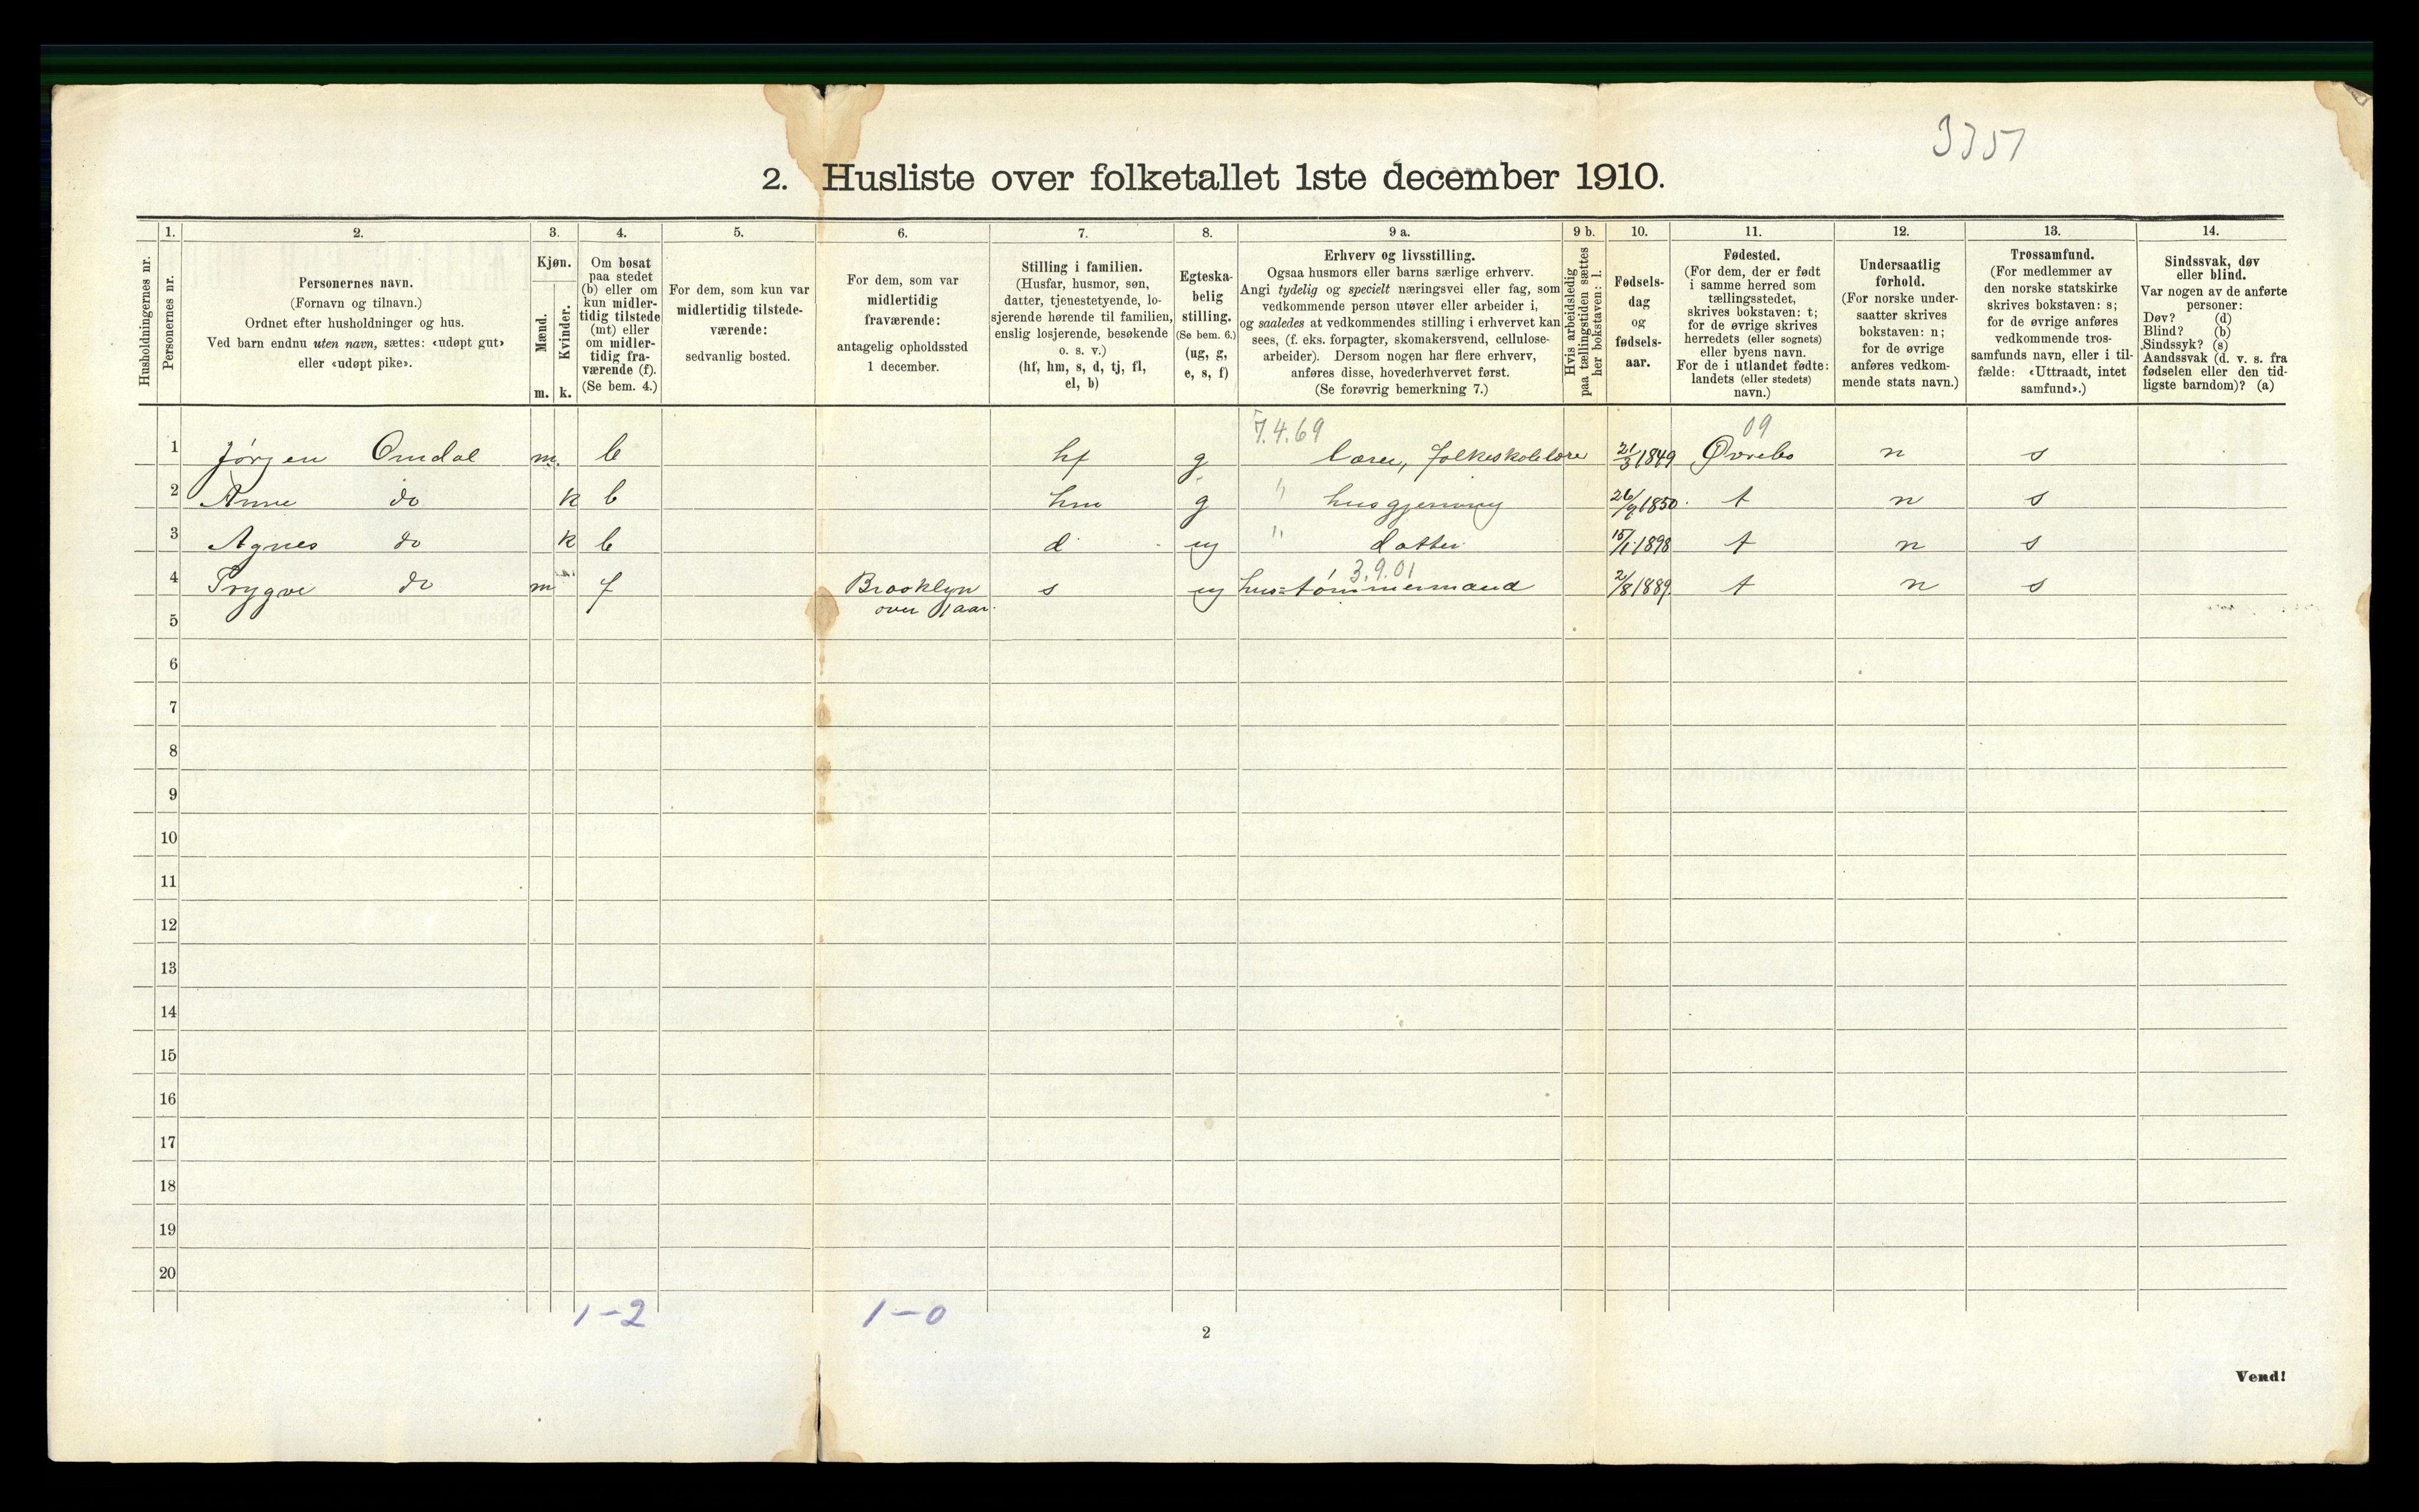 3351
2. Husliste over folketallet 1ste december 1910.
1. 2. 3. 4. 5. 6. 7. 8. 9 a. 9 b. 10. 11. 12. 13. 14.
Husholdningernes nr.
Personernes nr.
Personernes navn.
(Fornavn og tilnavn.)
Ordnet efter husholdninger og hus.
Ved barn endnu uten navn, sættes: «udøpt gut»
eller «udøpt pike».
Kjøn.
Mænd.
Kvinder.
m. k.
Om bosat
paa stedet
(b) eller om
kun midler-
tidig tilstede
(mt) eller
om midler-
tidig fra-
værende (f).
(Se bem. 4.)
For dem, som kun var
midlertidig tilstede-
værende:
sedvanlig bosted.
For dem, som var
midlertidig
fraværende:
antagelig opholdssted
1 december.
Stilling i familien.
(Husfar, husmor, søn,
datter, tjenestetyende, lo-
sjerende hørende til familien,
enslig losjerende, besøkende
o. s. v.)
(hf, hm, s, d, tj, fl,
el, b)
Egteska-
belig
stilling.
(Se bem. 6.)
(ug, g,
e, s, f)
Erhverv og livsstilling.
Ogsaa husmors eller barns særlige erhverv.
Angi tydelig og specielt næringsvei eller fag, som
vedkommende person utøver eller arbeider i,
og saaledes at vedkommendes stilling i erhvervet kan
sees, (f. eks. forpagter, skomakersvend, cellulose-
arbeider). Dersom nogen har flere erhverv,
anføres disse, hovederhvervet først.
(Se forøvrig bemerkning 7.)
Hvis arbeidsledig
paa tællingstiden sættes
her bokstaven: l.
Fødsels-
dag
og
fødsels-
aar.
Fødested.
(For dem, der er født
i samme herred som
tællingsstedet,
skrives bokstaven: t;
for de øvrige skrives
herredets (eller sognets)
eller byens navn.
For de i utlandet fødte:
landets (eller stedets)
navn.)
Undersaatlig
forhold.
(For norske under-
saatter skrives
bokstaven: n;
for de øvrige
anføres vedkom-
mende stats navn.)
Trossamfund.
(For medlemmer av
den norske statskirke
skrives bokstaven: s;
for de øvrige anføres
vedkommende tros-
samfunds navn, eller i til-
fælde: «Uttraadt, intet
samfund».)
Sindssvak, døv
eller blind.
Var nogen av de anførte
personer:
Døv? (d)
Blind? (b)
Sindssyk? (s)
Aandssvak (d. v. s. fra
fødselen eller den tid-
ligste barndom)? (a)
7.4.69 09
1 Jørgen Omdal m. b hf g lærer, folkeskolelærer 21/3 1849 Øvrebø n s
2 Anne do k b hm g " husgjerning 26/9 1850. t n s
3 Agnes do k b d ug " datter 15/1 1898 t n s
3.9.01
4 Trygve do m f Brooklyn s ug hus=tømmermand 2/8 1889. t n s
over 1 aar.
5
6
7
8
9
10
11
12
13
14
15
16
17
18
19
20
1-2 1-0
2
Vend!